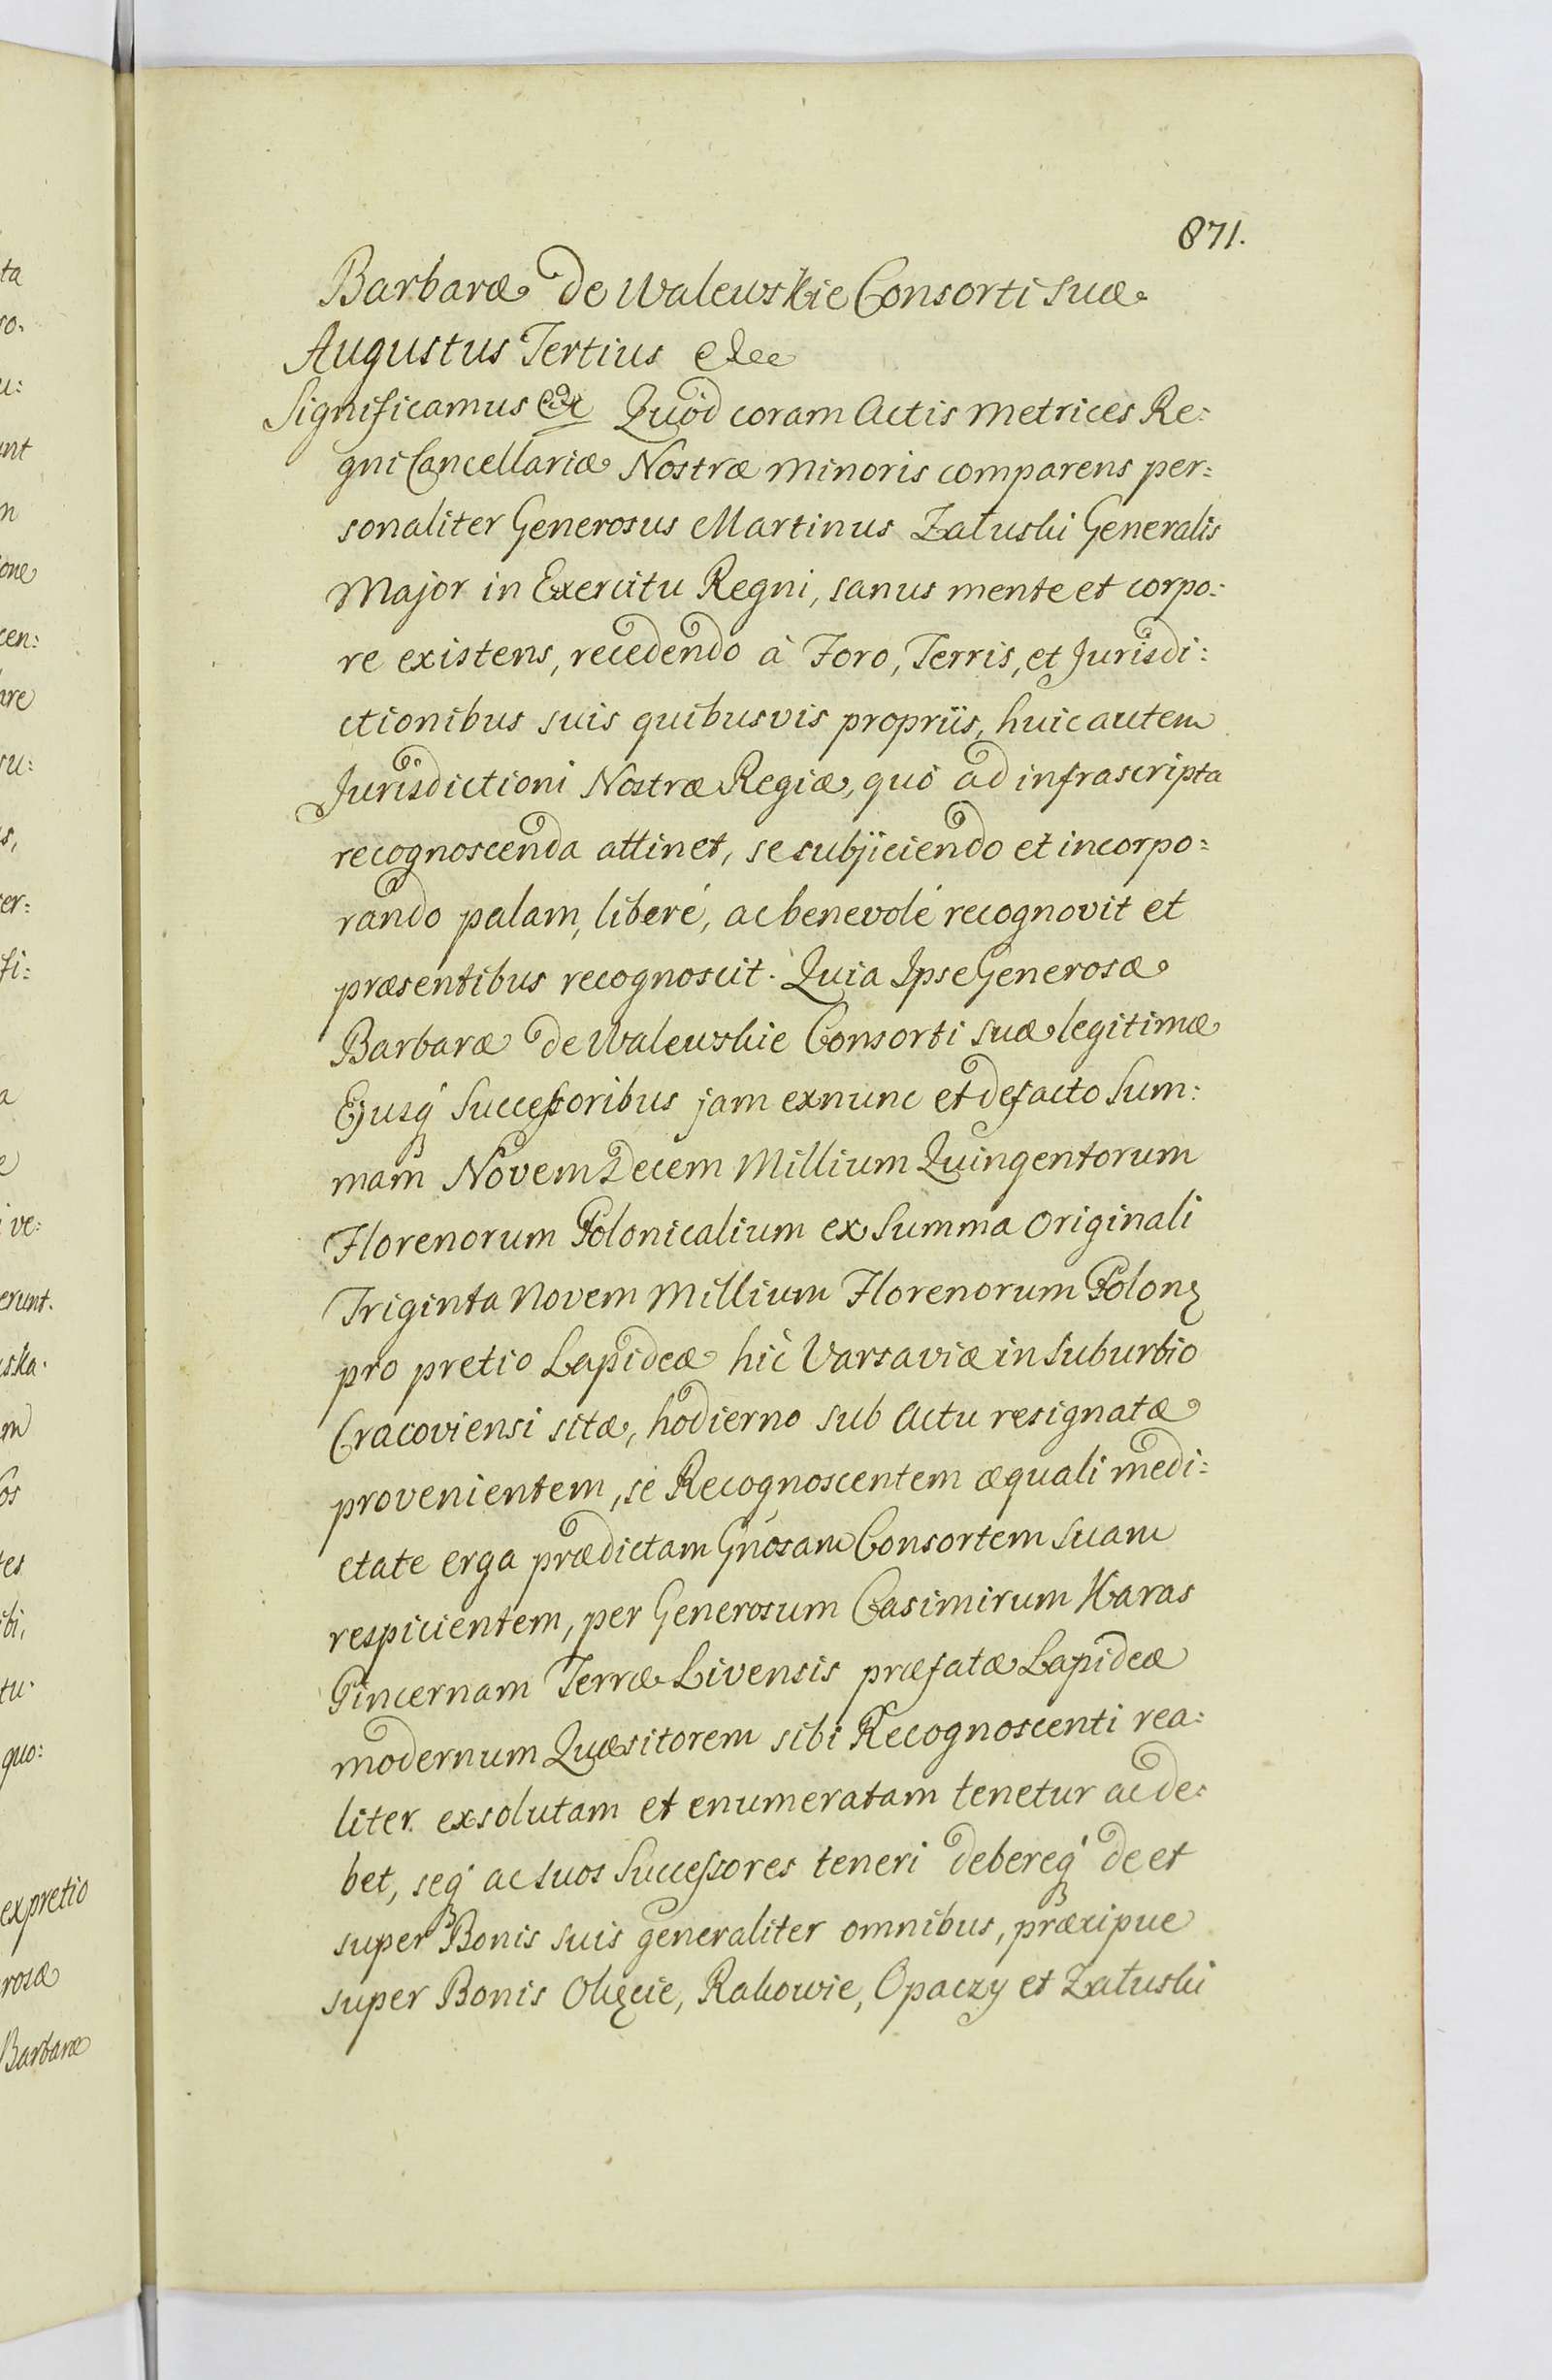 871.
Barbaræ de Walewskie Consorti Suæ
Augustus Tertius etc
Significamus etc Quod coram Actis Metrices Re:
gni Cancellariæ Nostræ Minoris comparens per:
sonaliter Generosus Martinus Załuski Generalis
Major in Exercitu Regni, sanus mente et corpo:
re existens, recedendo à Foro, Terris, et Jurisdi:
ctionibus suis quibusvis propriis, huic autem
Jurisdictioni Nostræ Regiæ, quò ad infrascripta
recognoscenda attinet, se subjiciendo et incorpo:
rando palam, liberé, ac benevolé recognovit et
præsentibus recognoscit. Quia Ipse Generosæ
Barbaræ de Walewskie Consorti suæ legitimæ
Ejusq́ Successoribus jam exnunc et defacto Sum:
mam Novem Decem Millium Quingentorum
Florenorum Polonicalium ex Summa Originali
Triginta Novem Millium Florenorum Polon̄
pro pretio Lapideæ hic Varsaviæ in Suburbio
Cracoviensi sitæ, hodierno sub Actu resignatæ
provenientem, se Recognoscentem æquali medi:
etate erga prædictam Gnosam Consortem Suam
respicientem, per Generosum Casimirum Karas
Pincernam Terræ Livensis præfatæ Lapideæ
modernum Quæsitorem sibi Recognoscenti rea:
liter exsolutam et enumeratam tenetur ac de:
bet, seq́ ac suos Successores teneri debereq́ de et
super Bonis suis generaliter omnibus, præcipue
super Bonis Okęcie, Rakowie, Opaczy et Załuski
ta
ro.
u:
unt
m
ione
cen:
are
su:
s,
er:
fi:
a
e
i ve:
erunt.
uska.
m
os
tes
ibi,
tu.
quo:
ex pretio
rosæ
Barbaræ